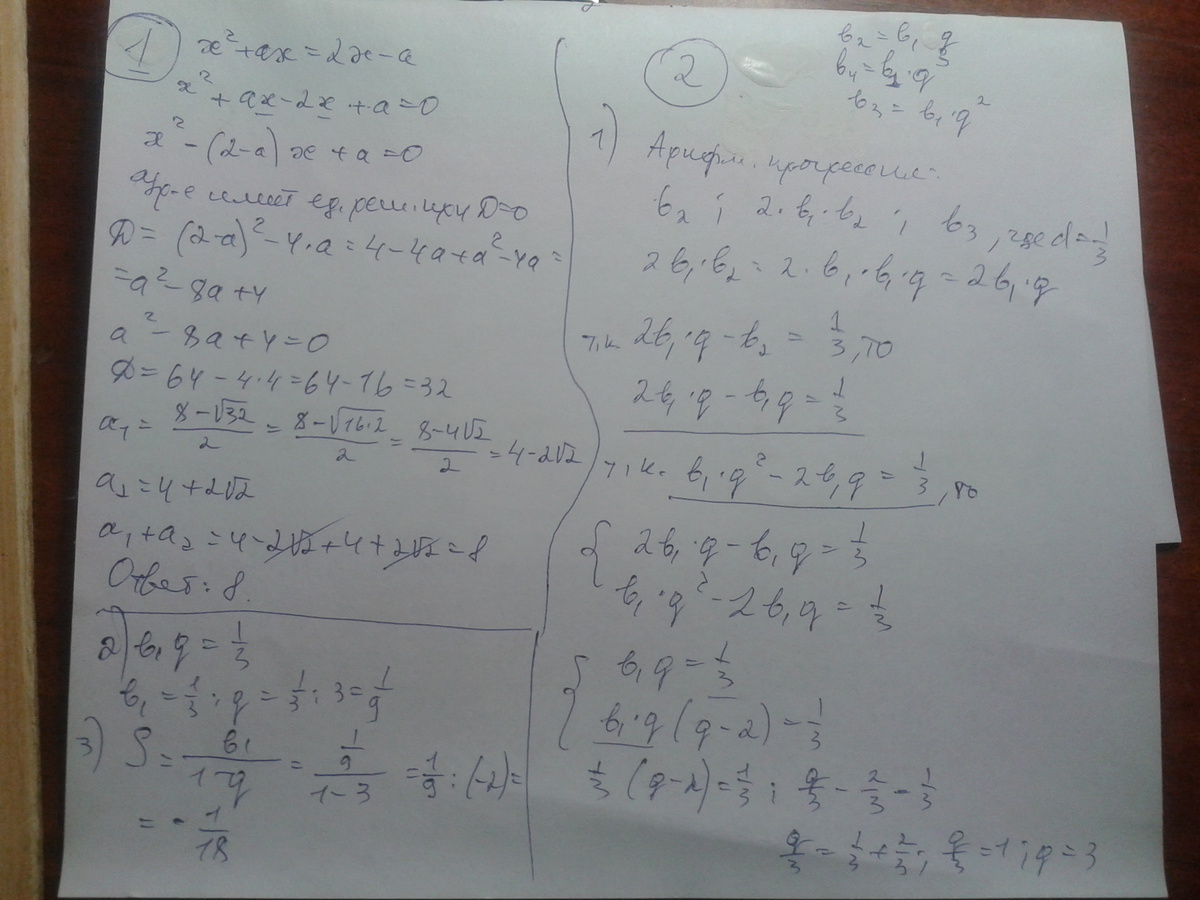 1
x² + ax = 2x - a
x² + ax - 2x + a = 0
x² - (2-a)x + a = 0
ур-е имеет ед. реш. при D=0
D = (2-a)² - 4·a = 4 - 4a + a² - 4a =
= a² - 8a + 4
a² - 8a + 4 = 0
D = 64 - 4·4 = 64 - 16 = 32
a₁ = (8-√32)/2 = (8-√16·2)/2 = (8-4√2)/2 = 4-2√2
a₂ = 4 + 2√2
a₁ + a₂ = 4 - 2√2 + 4 + 2√2 = 8
Ответ: 8.
2) b₁ q = 1/3
b₁ = 1/3 : q = 1/3 : 3 = 1/9
3) S = b₁/(1-q) = (1/9)/(1-3) = 1/9 : (-2) =
= - 1/18
2
b₂ = b₁ q
b₄ = b₁ · q³
b₃ = b₁ · q²
1) Арифм. прогрессия:
b₂ ; 2·b₁·b₂ ; b₃, где d = 1/3
2b₁·b₂ = 2·b₁·b₁·q = 2b₁·q
т.к. 2b₁·q - b₂ = 1/3, то
2b₁·q - b₁q = 1/3
т.к. b₁·q² - 2b₁q = 1/3, то
{ 2b₁·q - b₁q = 1/3
b₁·q² - 2b₁q = 1/3
{ b₁q = 1/3
b₁·q (q-2) = 1/3
1/3 (q-2) = 1/3 ; q/3 - 2/3 = 1/3
q/3 = 1/3 + 2/3 ; q/3 = 1 ; q = 3